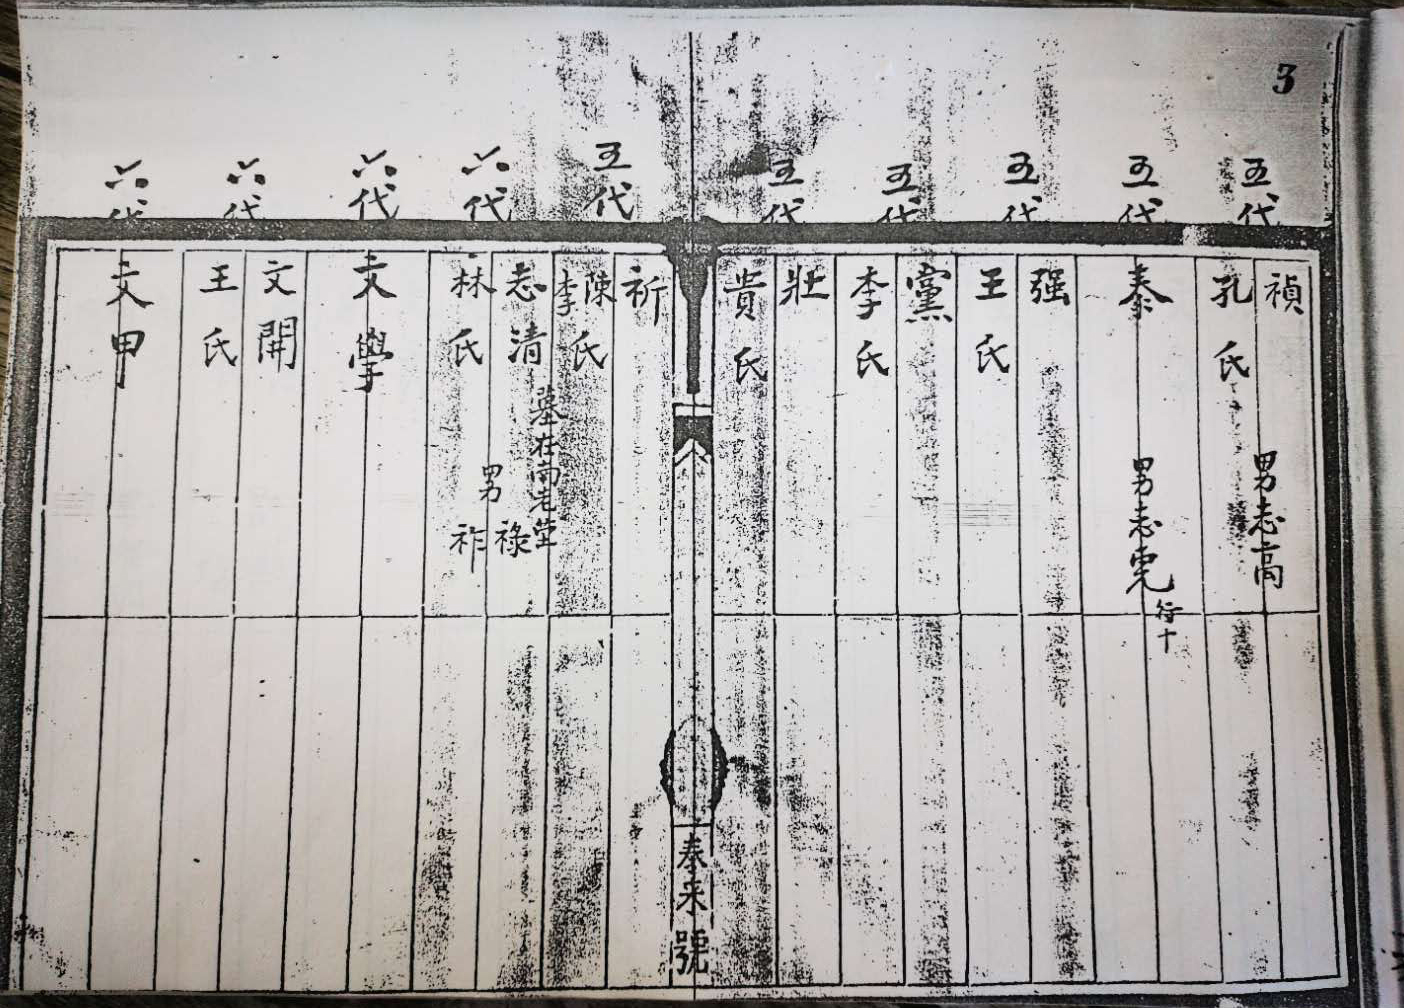 3
五代
禎
孔氏
男志高
五代
泰
男志亮
行十
五代
强
王氏
五代
黨
李氏
五代
壯
貴氏
泰来號
五代
祈
陳李氏
六代
志清
墓在南老塋
林氏
男祿祚
六代
文學
六代
文開
王氏
六代
文甲